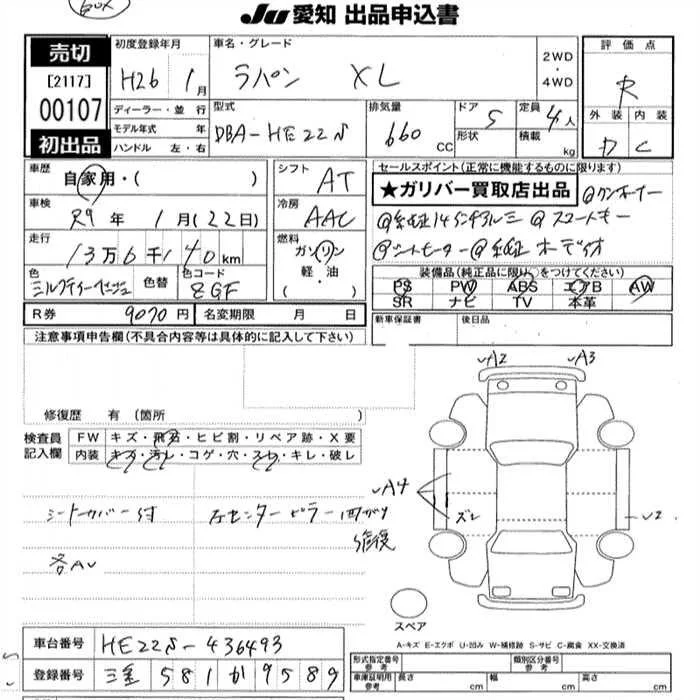 JU 愛知 出品申込書
売切
[2117]
00107
初出品
初度登録年月
H26 1月
車名・グレード
ラパン XL
2WD
・
4WD
評価点
R
外装 内装
D C
ディーラー・並行
モデル年式 年
ハンドル 左・右
型式
DBA-HE22S
排気量
660 CC
ドア 5
形状
定員 4人
積載 kg
車歴
自家用・( )
車検
R9年 1月(22日)
走行
13万6千140km
色
ミルクティーベージュ
色替
色コード
ZGF
シフト
AT
冷房
AAC
燃料
ガソリン
軽・油
・( )
セールスポイント(正常に機能するものに限ります)
★ガリバー買取店出品 @ワンオーナー
@純正14インチアルミ @スマートキー
@シートヒーター @純正オーディオ
装備品(純正品に限り)をつけてください
PS PW ABS エアB AW
SR ナビ TV 本革
R券 9070円 名変期限 月 日
新車保証書 後日品
注意事項申告欄(不具合内容等は具体的に記入して下さい)
修復歴 有 (箇所
検査員
記入欄
FW キズ・飛石・ヒビ割・リペア跡・X要
内装 キズ・汚レ・コゲ・穴・スレ・キレ・破レ
シートカバー付
各AU
左センターピラー曲がり
修復
A2
A3
A4
ズレ
U2
スペア
A-キズ E-エクボ U-凹み W-補修跡 S-サビ C-腐食 XX-交換済
車台番号 HE22S-436493
登録番号 三重 581 か 9589
形式指定番号
参考
類別区分番号
参考
車庫証明用
参考
長さ cm 幅 cm 高さ cm